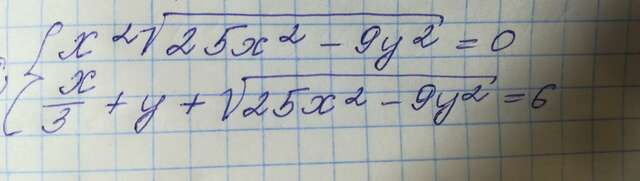 x²√25x² - 9y² = 0
x/3 + y + √25x² - 9y² = 6